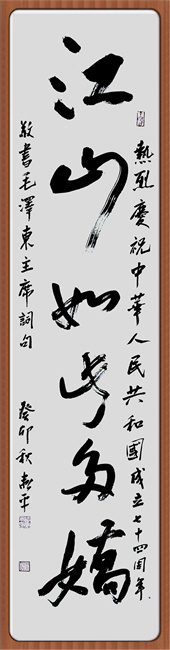 熱烈慶祝中華人民共和國成立七十四周年
江山如此多嬌
敬書毛澤東主席詞句
癸卯秋 春平